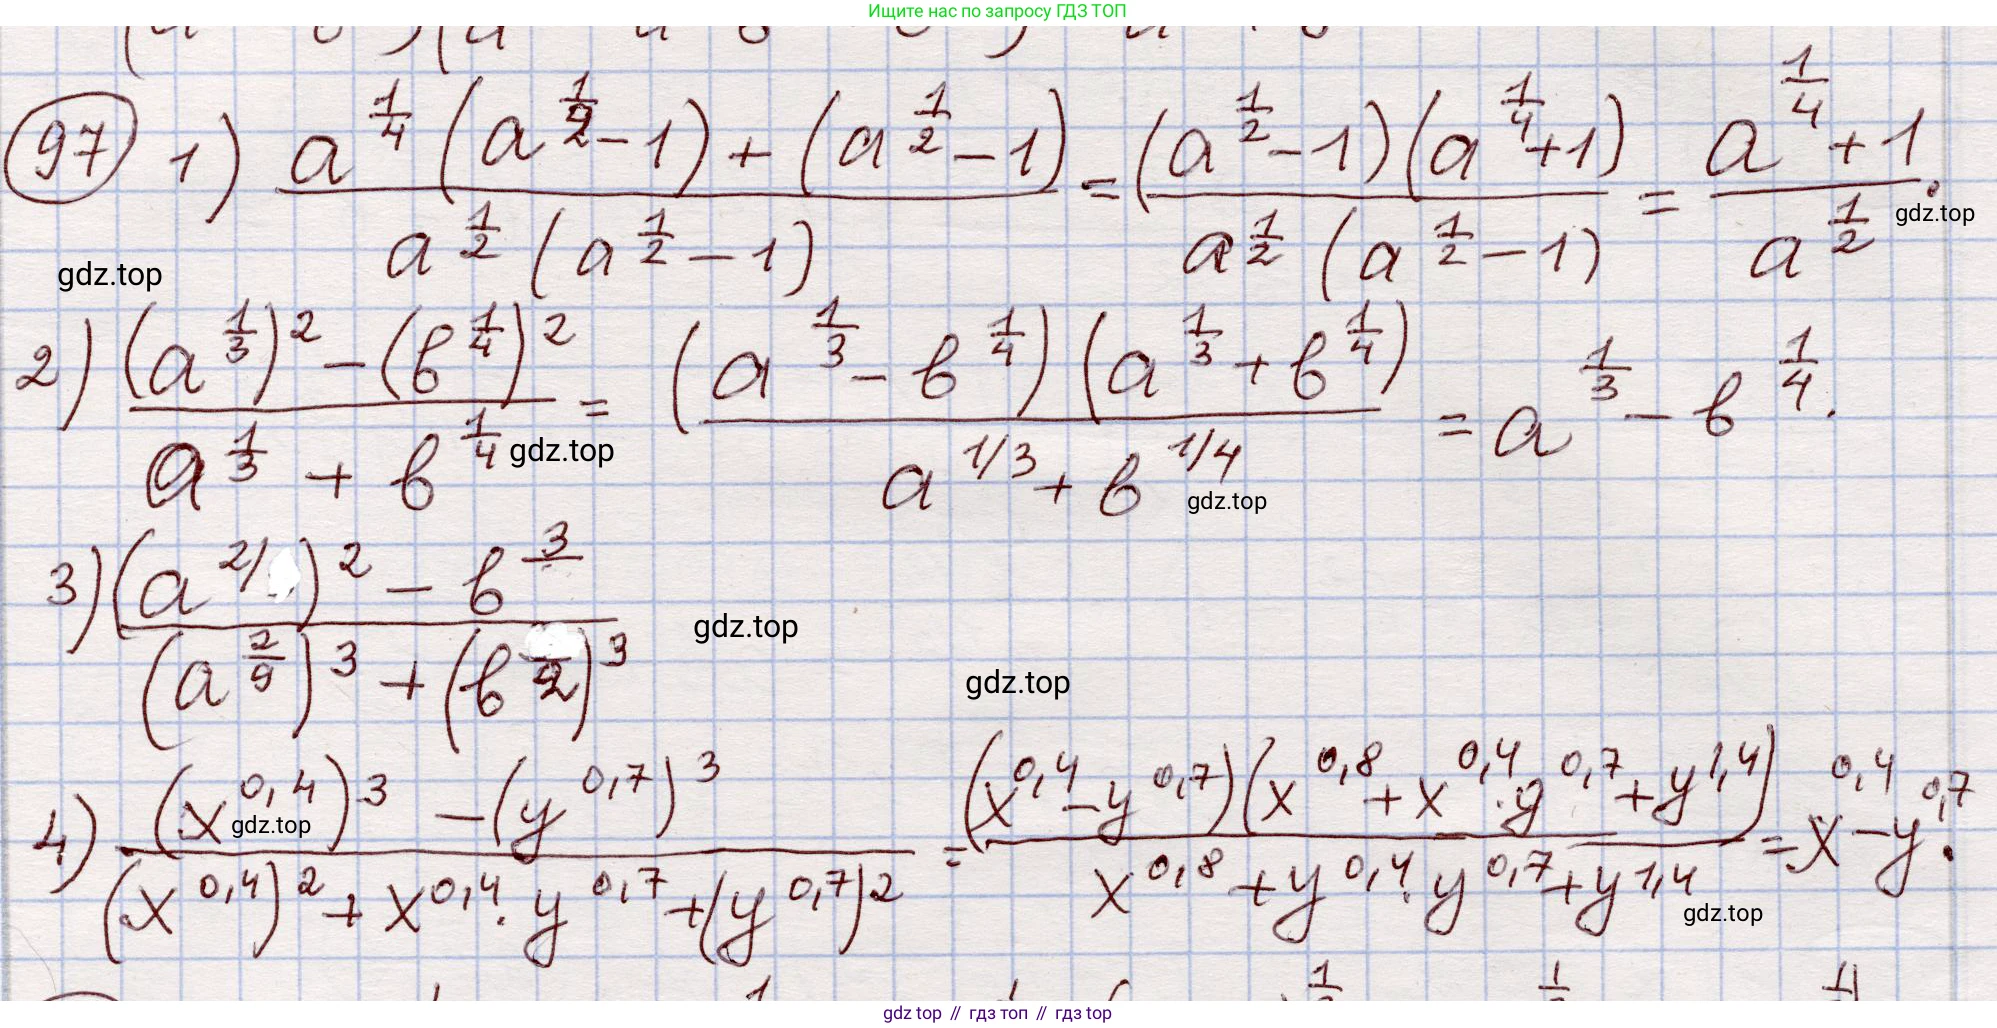 Ищите нас по запросу ГДЗ ТОП
97 1) (a^(1/4) (a^(1/2) - 1) + (a^(1/2) - 1)) / (a^(1/2) (a^(1/2) - 1)) = ((a^(1/2) - 1)(a^(1/4) + 1)) / (a^(1/2) (a^(1/2) - 1)) = (a^(1/4) + 1) / a^(1/2).
gdz.top
gdz.top
2) ((a^(1/3))^2 - (b^(1/4))^2) / (a^(1/3) + b^(1/4)) = ((a^(1/3) - b^(1/4))(a^(1/3) + b^(1/4))) / (a^(1/3) + b^(1/4)) = a^(1/3) - b^(1/4).
gdz.top
gdz.top
3) ((a^(2/ ))^2 - b^(3/ )) / ((a^(2/9))^3 + (b^( /2))^3)
gdz.top
gdz.top
4) ((x^0,4)^3 - (y^0,7)^3) / ((x^0,4)^2 + x^0,4 · y^0,7 + (y^0,7)^2) = ((x^0,4 - y^0,7)(x^0,8 + x^0,4 · y^0,7 + y^1,4)) / (x^0,8 + y^0,4 · y^0,7 + y^1,4) = x^0,4 - y^0,7.
gdz.top
gdz.top
gdz top // гдз топ // гдз top